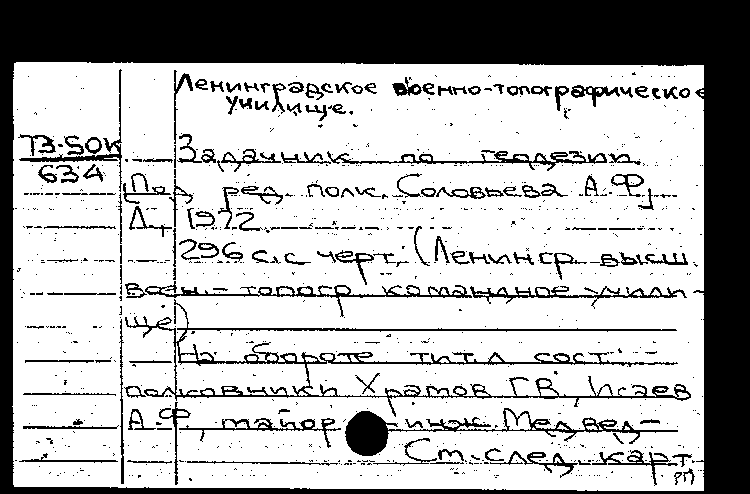 Ленинградское военно-топографическое
училище.
ТЗ-50К
634
Задачник по геодезии.
[Под ред. полк. Соловьева А.Ф]
Л., 1972
296 с. с черт. (Ленингр. высш.
воен.-топогр. командное учили-
ще)
На обороте тит.л сост.:
полковники Храмов Г.В., Исаев
А.Ф., майор-инж. Медвед-
См. след. карт.
РП